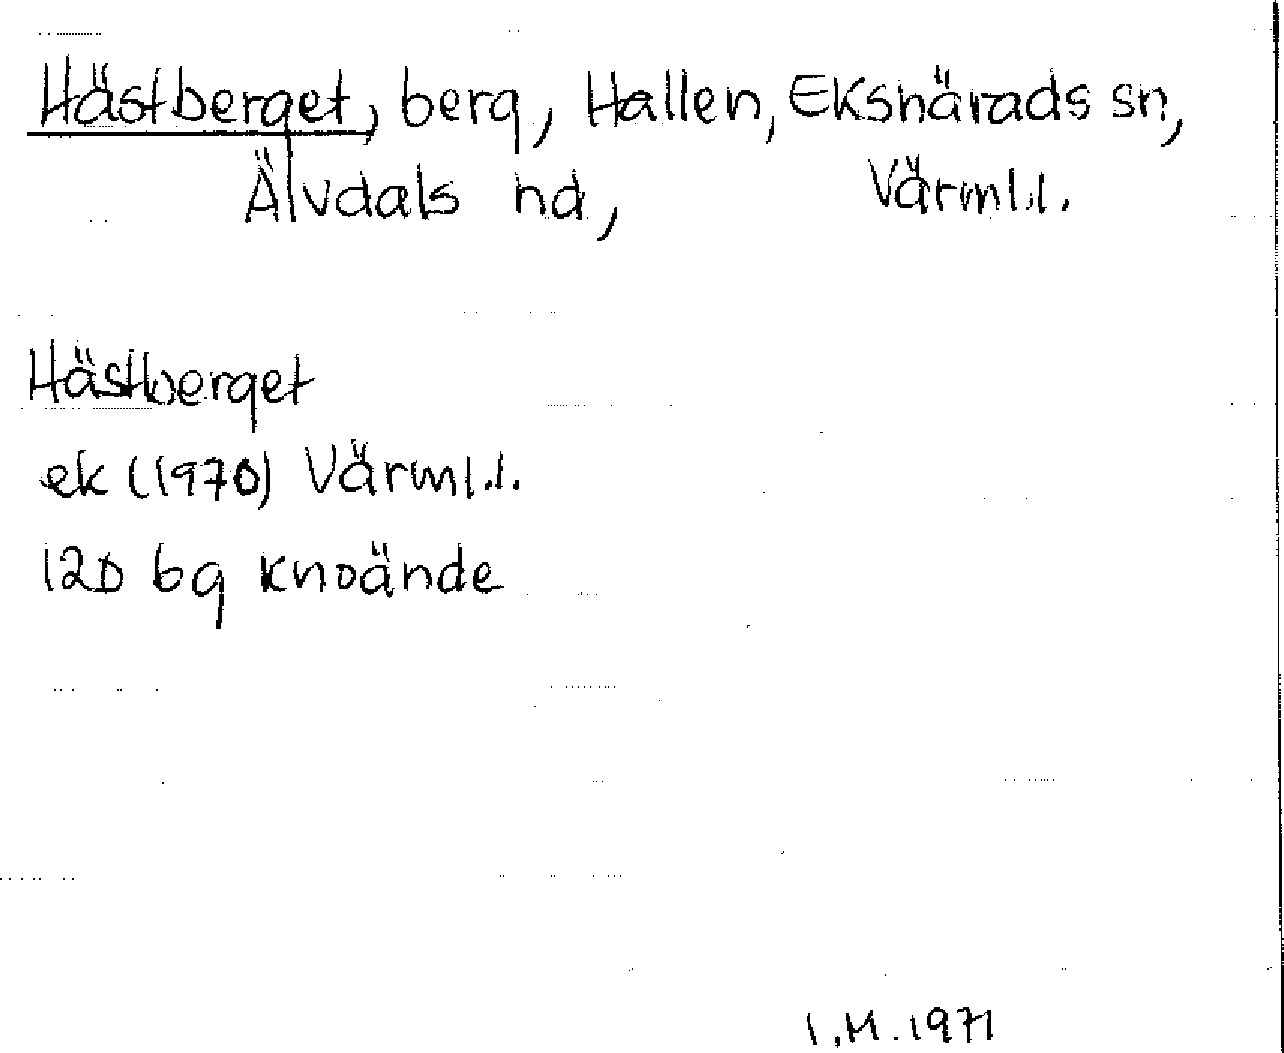 Hästberget, berg, Hallen, Ekshärads sn,
Älvdals hd, Värml.l.
Hästberget
ek (1970) Värml.l.
12D 6g Knoände
I.M.1971